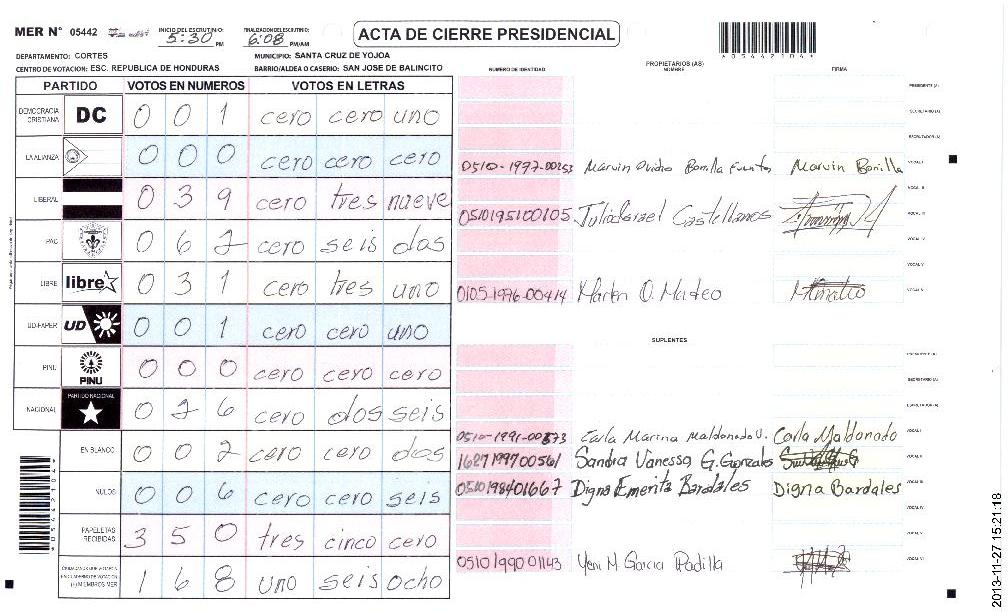 MER N° 05442 INICIO DEL ESCRUTINIO: 5:30 PM FINALIZACION DEL ESCRUTINIO: 6:08 PM/AM
ACTA DE CIERRE PRESIDENCIAL
*05442104*
DEPARTAMENTO: CORTES MUNICIPIO: SANTA CRUZ DE YOJOA
CENTRO DE VOTACION: ESC. REPUBLICA DE HONDURAS BARRIO/ALDEA O CASERIO: SAN JOSE DE BALINCITO
PARTIDO VOTOS EN NUMEROS VOTOS EN LETRAS
DEMOCRACIA CRISTIANA DC 0 0 1 cero cero uno
LA ALIANZA 0 0 0 cero cero cero
LIBERAL 0 3 9 cero tres nueve
PAC 0 6 2 cero seis dos
LIBRE libre 0 3 1 cero tres uno
UD-FAPER UD 0 0 1 cero cero uno
PINU PINU 0 0 0 cero cero cero
NACIONAL PARTIDO NACIONAL 0 2 6 cero dos seis
EN BLANCO 0 0 2 cero cero dos
NULOS 0 0 6 cero cero seis
PAPELETAS RECIBIDAS 3 5 0 tres cinco cero
CIUDADANOS QUE VOTARON EN CUADERNO DE VOTACION (+) MIEMBROS MER 1 6 8 uno seis ocho
NUMERO DE IDENTIDAD PROPIETARIOS (AS) NOMBRE FIRMA
PRESIDENTE (A)
SECRETARIO (A)
ESCRUTADOR (A)
0510-1997-00253 Marvin Ovidio Bonilla Fuentes Marvin Bonilla VOCAL I
VOCAL II
0510195100105 Julio Israel Castellanos VOCAL III
VOCAL IV
VOCAL V
0105-1976-00414 Marlen O. Mateo MMateo
SUPLENTES
PRESIDENTE (A)
SECRETARIO (A)
ESCRUTADOR (A)
0510-1991-00873 Carla Marina Maldonado U. Carla Maldonado VOCAL I
1627199700561 Sandra Vanessa G. Gonzales VOCAL II
0510198401667 Digna Emerita Bardales Digna Bardales VOCAL III
VOCAL IV
VOCAL V
0510199001143 Yeni M Garcia Padilla VOCAL VI
*05442104*
2013-11-27 15:21:18